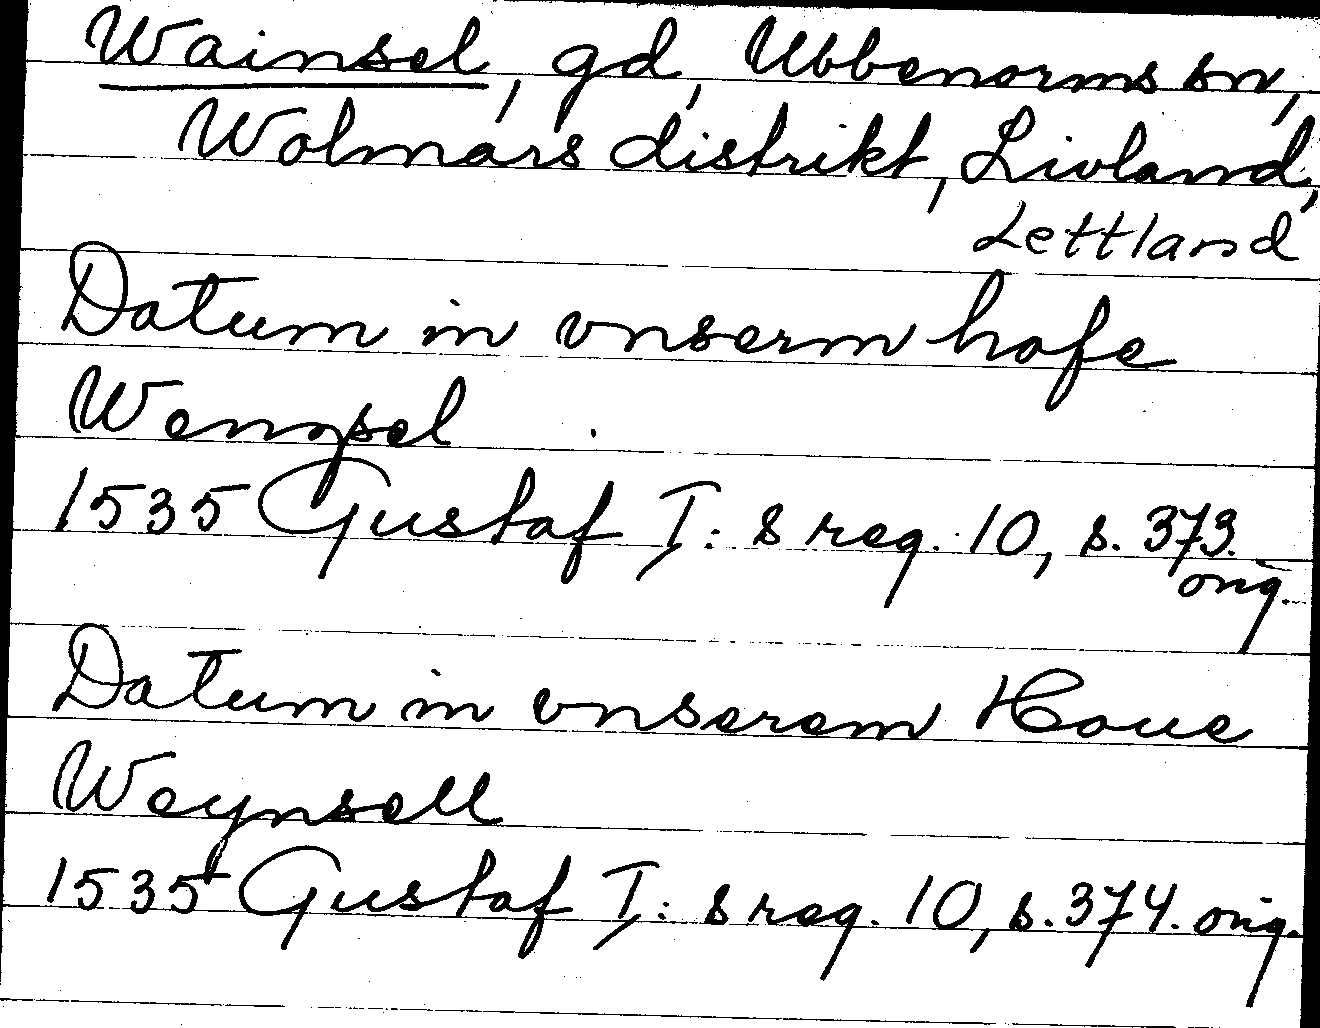 Wainsel, gd, Ubbenorms sn,
Wolmars distrikt, Livland,
Lettland
Datum in vnserm hofe
Wengsel
1535 Gustaf I:s reg. 10, s. 373.
orig.
Datum in vnserem Houe
Weynsell
1535 Gustaf I:s reg. 10, s. 374. orig.